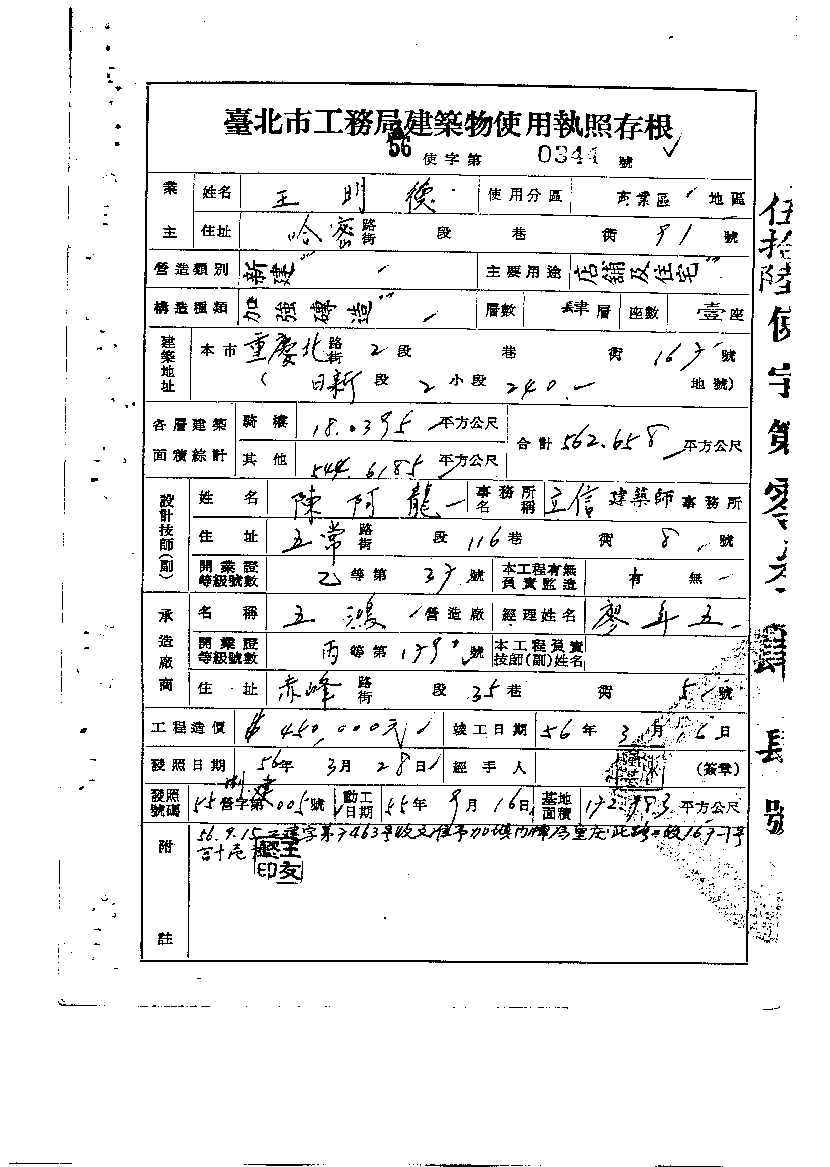 臺北市工務局建築物使用執照存根
56 使字第 0344 號
業主 姓名 王明德 使用分區 商業區 地區
住址 哈密路街 段 巷 衖 91 號
營造類別 新建 主要用途 店鋪及住宅
構造種類 加強磚造 層數 肆層 座數 壹座
建築地址 本市 重慶北路街 2段 巷 衖 號
( 日新段 2小段 240 地號)
各層建築面積綜計 騎樓 18.0395 平方公尺 合計 562.658 平方公尺
其他 544.6185 平方公尺
設計技師(副) 姓名 陳阿龍 事務所名稱 立信建築師事務所
住址 五常路街 段 116巷 衖 8 號
開業證等級號數 乙等第 37 號 本工程有無負責監造 有 無
承造廠商 名稱 五鴻 營造廠 經理姓名 廖年五
開業證等級號數 丙等第 號 本工程負責技師(副)姓名
住址 赤峰路街 段 35巷 衖 5 號
工程造價 $450,000元 竣工日期 56年 3月 16日
發照日期 56年 3月 28日 經手人 (簽章)
發照號碼 55營字第005號 動工日期 55年 9月 16日 基地面積 172.983 平方公尺
附註 56.9.15
王友印
伍拾陸使字第零叁肆肆號